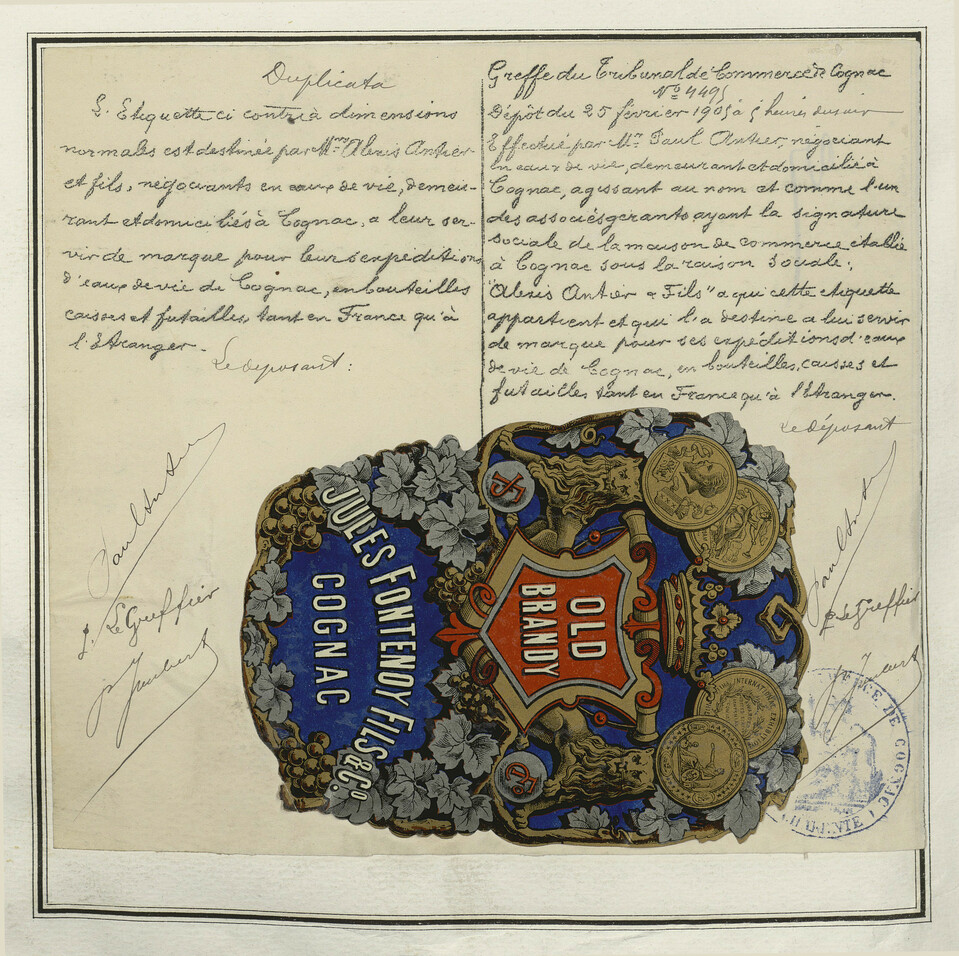 Duplicata
L'Etiquette ci contre à dimensions
normales est destinée par Mrs Alexis Antier
et fils, négociants en eaux de vie, demeu-
rant et domiciliés à Cognac, a leur ser-
vir de marque pour leurs expeditions
d'eaux de vie de Cognac, en bouteilles
caisses et futailles, tant en France qu'à
l'Etranger.
Le deposant :
Paul Antier
P. Le Greffier
Greffe du Tribunal de Commerce de Cognac
No 4495
Dépôt du 25 février 1905 à 5 heures du soir
Effectué par Mr Paul Antier, négociant
en eaux de vie, demeurant et domicilié à
Cognac, agissant au nom et comme l'un
des associés gérants ayant la signature
sociale de la maison de commerce établie
à Cognac sous la raison sociale:,
"Alexis Antier & Fils" a qui cette etiquette
appartient et qui l'a destine a lui servir
de marque pour ses expéditions d'eaux
de vie de Cognac, en bouteilles, caisses et
futailles tant en France qu'à l'Etranger.
Le déposant
Paul Antier
P. Le Greffier
JULES FONTENOY FILS & Co.
COGNAC
OLD
BRANDY
JF
INTERNATIONAL
CE DE COGNAC